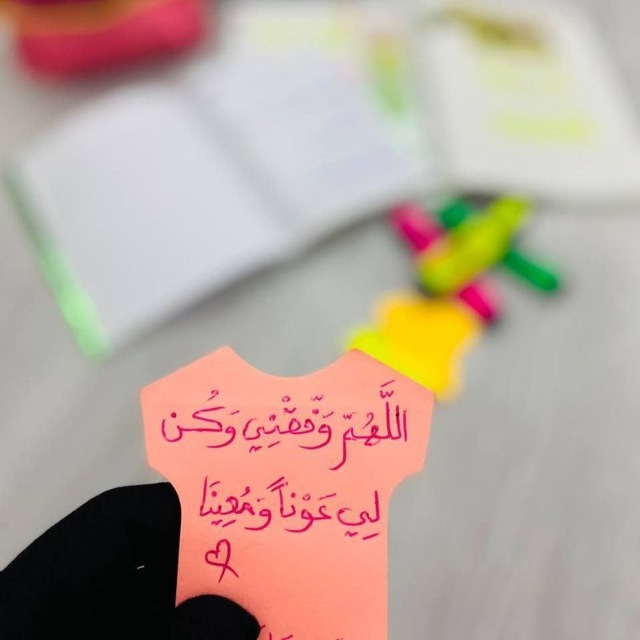 اللَّهُمّ وَفِّقْنِي وَكُن
لِي عَوْناً وَمُعِينَا